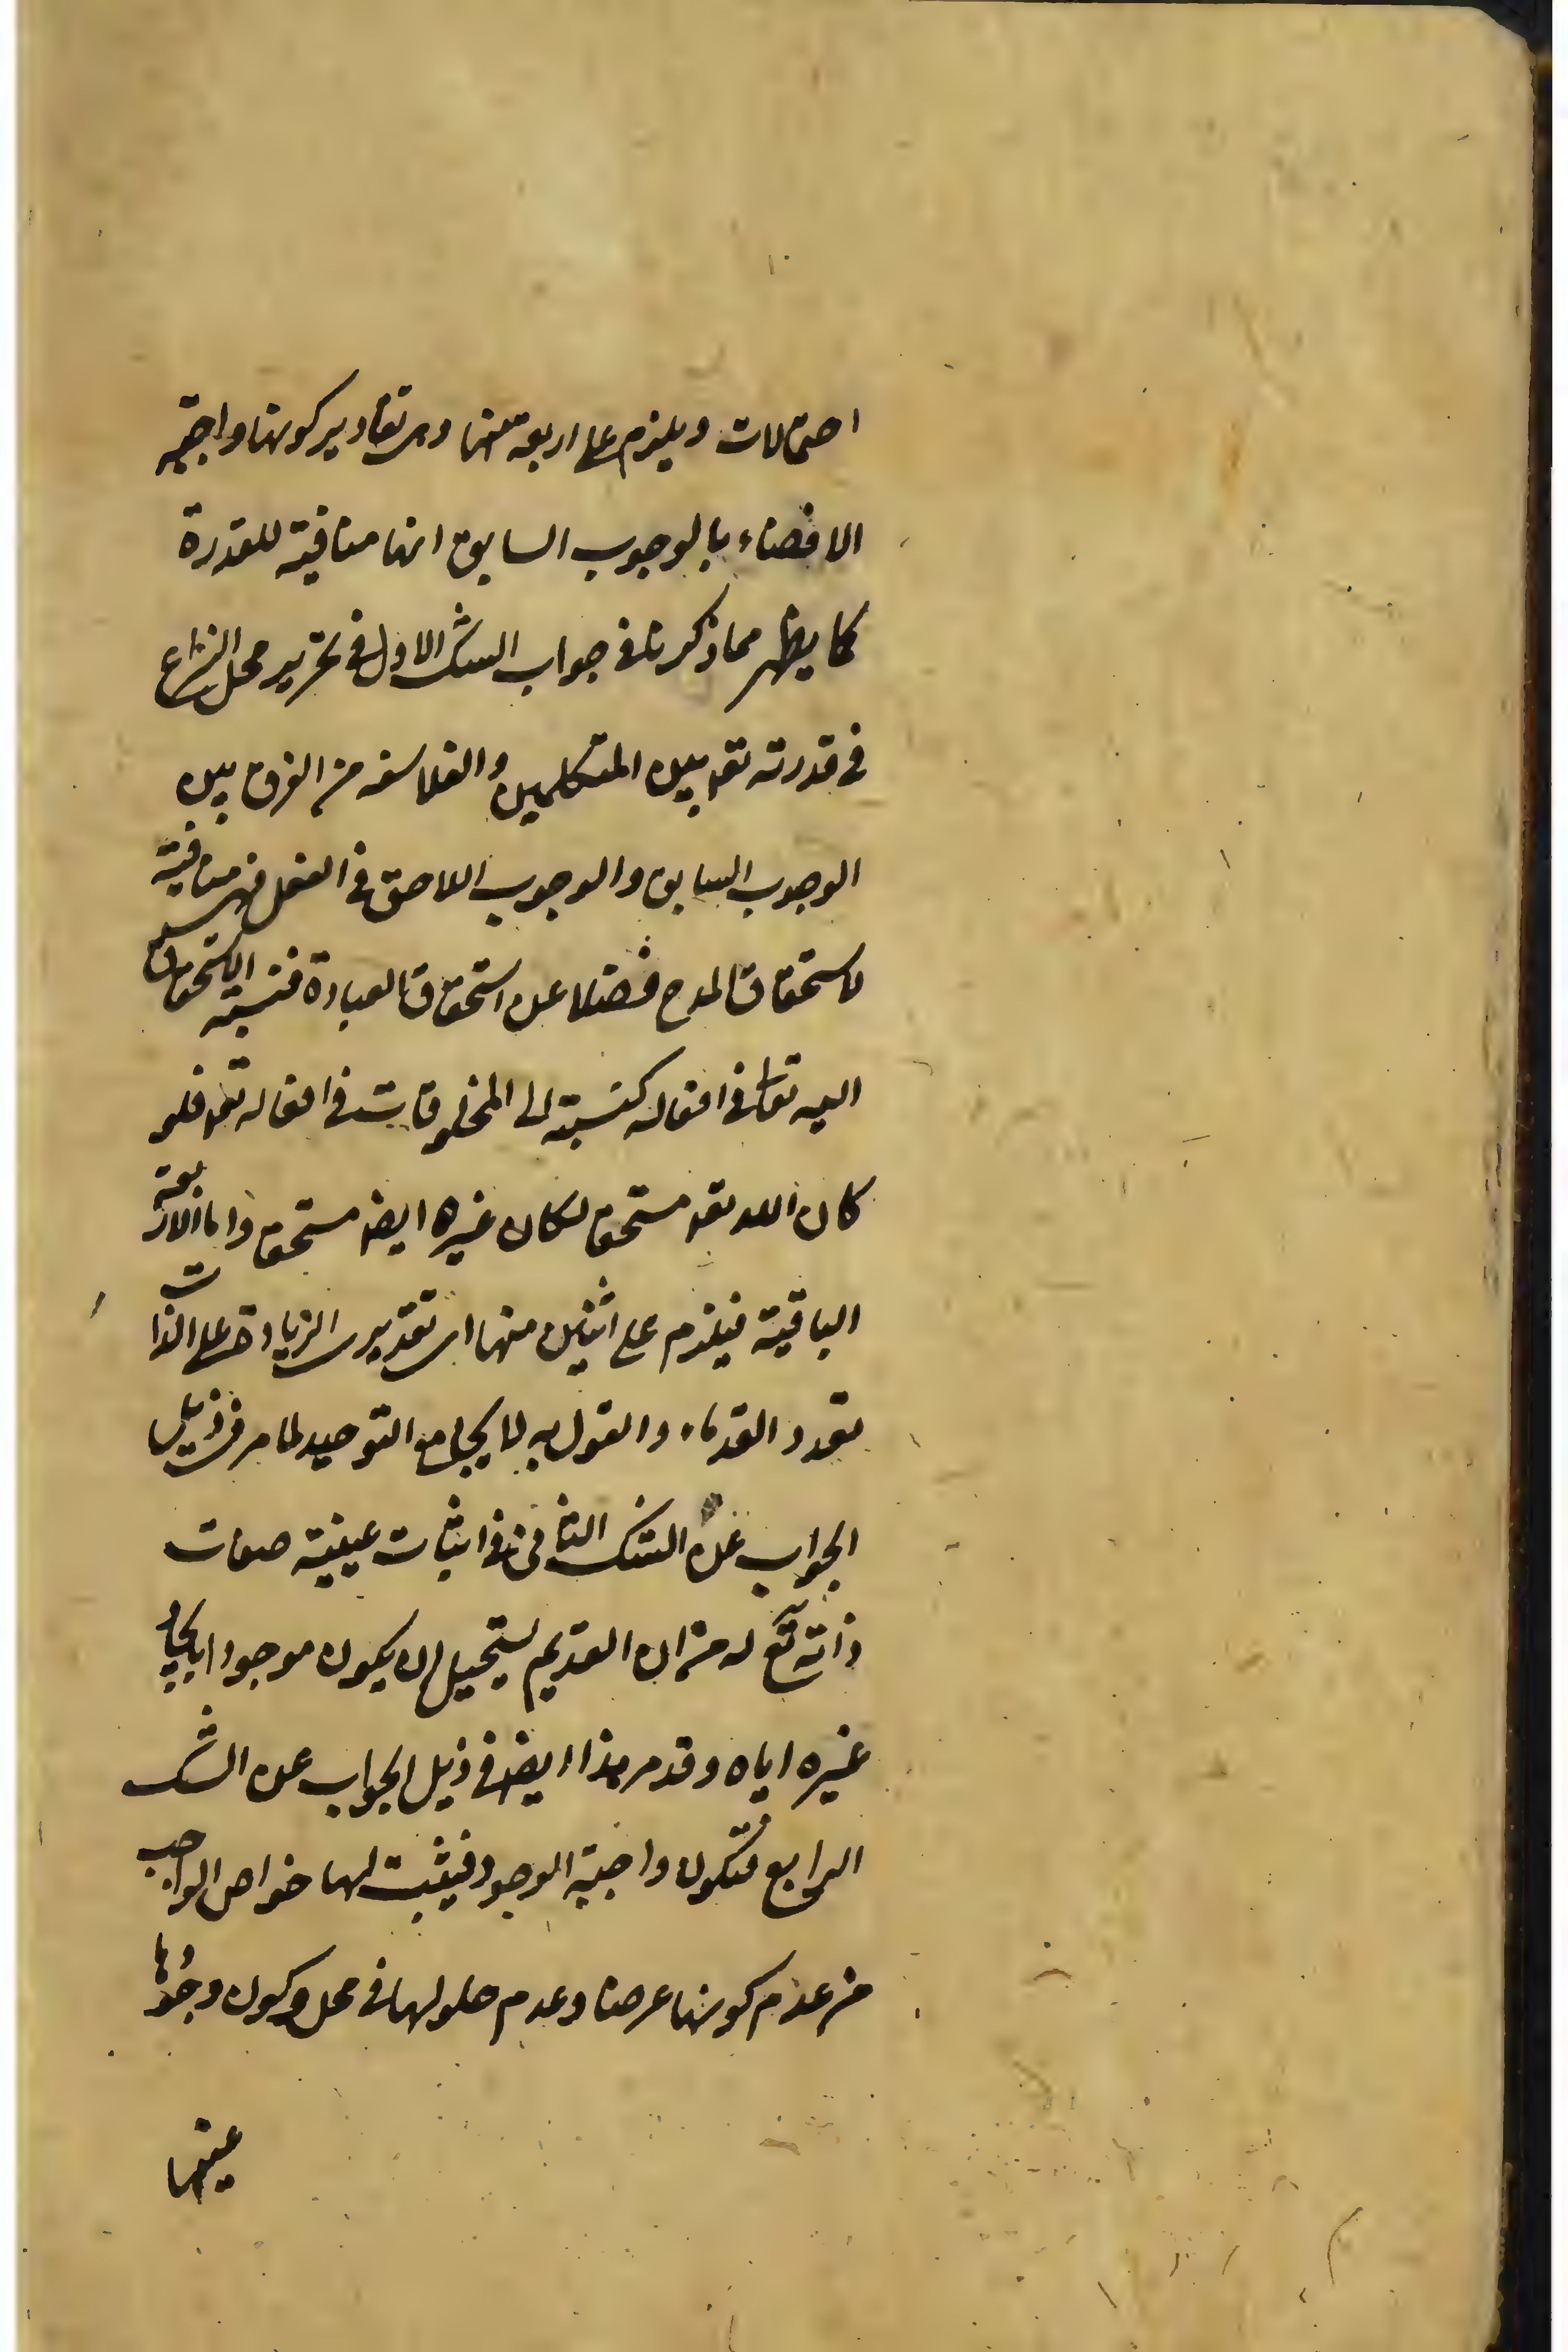 احتمالات ويلزم على اربعة منها وهى تقادير كونها واجبة
الاقضاء بالوجوب السابق انها منافية للقدرة
كما يظهر مما ذكرنا فى جواب الشك الاول فى تحرير محل النزاع
فى قدرته تعه بين المتكلمين والفلاسفه من الفرق بين
الوجوب السابق والوجوب اللاحق فى الفعل فهى منافية
لاستحقاق المدح فضلا عن استحقاق العبادة فنسبة الاستحقاق
اليه تعالى فى افعاله كنسبته الى المخلوقات فى افعاله تعه فلو
كان الله تعه مستحق لكان غيره ايضه مستحق واما الاربعة
الباقية فيلزم على اثنين منها اى تقديرى الزيادة على الذات
تعدد القدماء والقول به لا يجامع التوحيد لما مر فى ذيل
الجواب عن الشك الثانى فى اثبات عينية صفات
ذاته تع له من ان القديم يستحيل ان يكون موجودا بايجاد
غيره اياه وقد مر هذا ايضه فى ذيل الجواب عن الشك
الرابع فتكون واجبة الوجود فيثبت لها خواص الواجب
من عدم كونها عرضا وعدم حلولها فى محل وكون وجودها
عينها